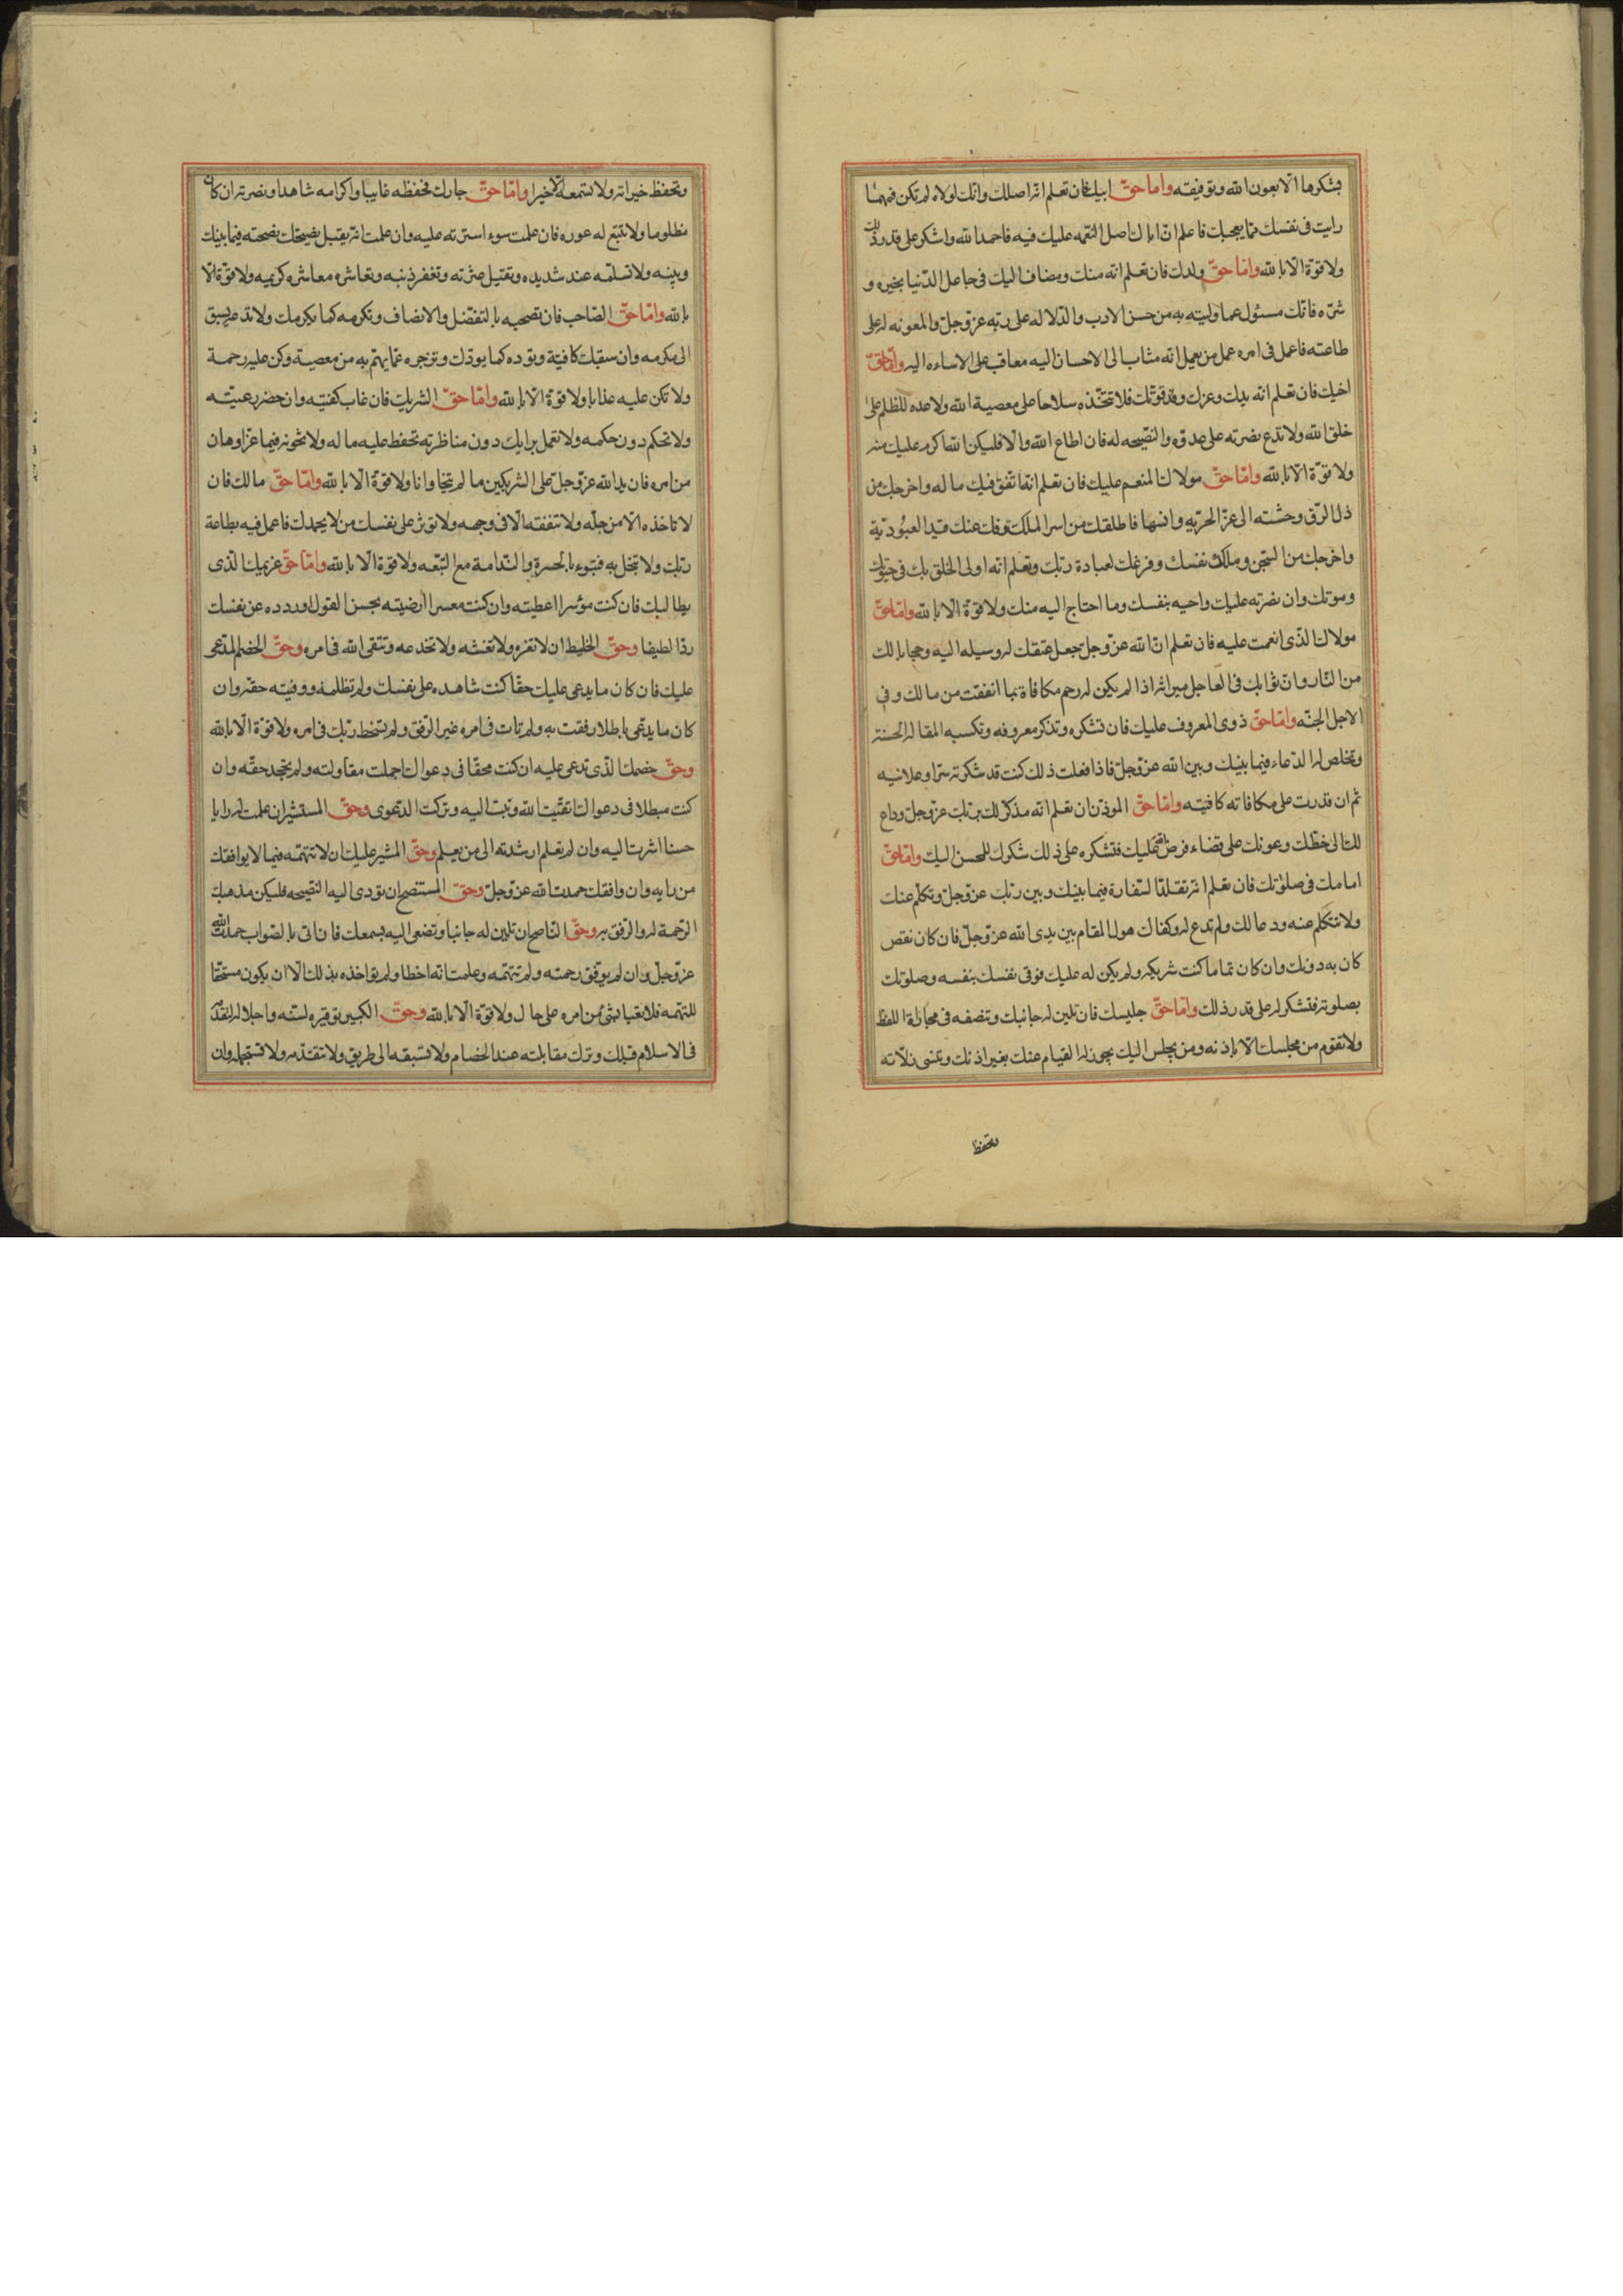 بشكرها الا بعون الله وتوفيقه واما حق ابيك فان تعلم انه اصلك وانك لولاه لم تكن فمهما
رايت فى نفسك مما يعجبك فاعلم ان اباك اصل النعمه عليك فيه فاحمد الله واشكره على قدر ذلك
ولا قوة الا بالله واما حق ولدك فان تعلم انه منك ومضاف اليك فى عاجل الدنيا بخيره و
شره فانك مسئول عما وليته به من حسن الادب والدلاله على ربه عز وجل والمعونه له على
طاعته فاعمل فى امره عمل من يعمل انه مثاب الى الاحسان اليه معاقب على الاساءه اليه واما حق
اخيك فان تعلم انه يدك وعزك وقوتك فلا تتخذه سلاحا على معصية الله ولا عده للظلم على
خلق الله ولا تدع نصرته على عدوه والنصيحه له فان اطاع الله والا فليكن الله اكرم عليك منه
ولا قوة الا بالله واما حق مولاك المنعم عليك فان تعلم انه انفق فيك ماله واخرجك من
ذل الرق وحشته الى عز الحريه وانسها فاطلقك من اسر الملك وفك عنك قيد العبوديه
واخرجك من السجن وملكك نفسك وفرغك لعبادة ربك وتعلم انه اولى الخلق بك فى حيوتك
وموتك وان نصرته عليك واجبه بنفسك وما احتاج اليه منك ولا قوة الا بالله واما حق
مولاك الذى انعمت عليه فان تعلم ان الله عز وجل جعل عتقك له وسيله اليه وحجابا لك
من النار وان ثوابك فى العاجل ميراثه اذا لم يكن له رحم مكافاة بما انفقت من مالك وفى
الاجل الجنه واما حق ذوى المعروف عليك فان تشكره وتذكر معروفه وتكسبه المقاله الحسنه
وتخلص له الدعاء فيما بينك وبين الله عز وجل فاذا فعلت ذلك كنت قد شكرته سرا وعلانيه
ثم ان قدرت على مكافاته كافيته واما حق الموذن ان تعلم انه مذكر لك بربك عز وجل وداع
لك الى حظك وعونك على قضاء فرض الله عليك فتشكره على ذلك شكرك للمحسن اليك واما حق
امامك فى صلوتك فان تعلم انه تقلد السفارة فيما بينك وبين ربك عز وجل وتكلم عنك
ولا تتكلم عنه ودعا لك ولم تدع له وكفاك هول المقام بين يدى الله عز وجل فان كان نقص
كان به دونك وان كان تماما كنت شريكه ولم يكن له عليك فوقى نفسك بنفسه وصلوتك
بصلوته فتشكر له على قدر ذلك واما حق جليسك فان تلين له جانبك وتنصفه فى مجازاة اللفظ
ولا تقوم من مجلسك الا باذنه ومن يجلس اليك يجوز له القيام عنك بغير اذنك وتنسى زلاته
وتحفظ
وتحفظ خيراته ولا تسمعه الا خيرا واما حق جارك فحفظه غايبا واكرامه شاهدا ونصرته ان كان
مظلوما ولا تتبع له عوره فان علمت سوء استرته عليه وان علمت انه يقبل نصيحتك نصحته فيما بينك
وبينه ولا تسلمه عند شديده وتقيل عثرته وتغفر ذنبه وتعاشره معاشره كريمه ولا قوة الا
بالله واما حق الصاحب فان تصحبه بالتفضل والانصاف وتكرمه كما يكرمك ولا تدعه يسبق
الى مكرمه وان سبقك كافيته وتوده كما يودك وتزجره عما يهم به من معصية وكن عليه رحمة
ولا تكن عليه عذابا ولا قوة الا بالله واما حق الشريك فان غاب كفيته وان حضر رعيته
ولا تحكم دون حكمه ولا تعمل برايك دون مناظرته تحفظ عليه ماله ولا تخونه فيما عز او هان
من امره فان يد الله عز وجل على الشريكين ما لم يتخاونا ولا قوة الا بالله واما حق مالك فان
لا تاخذه الا من حله ولا تنفقه الا فى وجهه ولا توثر على نفسك من لا يحمدك فاعمل فيه بطاعة
ربك ولا تبخل به فتبوء بالحسرة والندامة مع التبعه ولا قوة الا بالله واما حق غريمك الذى
يطالبك فان كنت موسرا اعطيته وان كنت معسرا ارضيته بحسن القول ورددده عن نفسك
ردا لطيفا وحق الخليط ان لا تغره ولا تغشه ولا تخدعه وتتقى الله فى امره وحق الخصم المدعى
عليك فان كان ما يدعى عليك حقا كنت شاهده على نفسك ولم تظلمه ووفيته حقه وان
كان ما يدعى باطلا رفقت به ولم تات فى امره غير الرفق ولم تسخط ربك فى امره ولا قوة الا بالله
وحق خصمك الذى تدعى عليه ان كنت محقا فى دعواك اجملت مقاولته ولم تجحد حقه وان
كنت مبطلا فى دعواك اتقيت الله وتبت اليه وتركت الدعوى وحق المستشير ان علمت له رايا
حسنا اشرت اليه وان لم تعلم ارشدته الى من يعلم وحق المشير عليك ان لا تتهمه فيما لا يوافقك
من رايه وان وافقك حمدت الله عز وجل وحق المستنصح ان تودى اليه النصيحه فليكن مذهبك
الرحمة له والرفق به وحق الناصح ان تلين له جانبا وتصغى اليه بسمعك فان اتى بالصواب حمدت الله
عز وجل وان لم يوفق رحمته ولم تتهمه وعلمت انه اخطا ولم تواخذه بذلك الا ان يكون مستحقا
للتهمه فلا تعبا بشئ من امره على حال ولا قوة الا بالله وحق الكبير توقيره لسنه واجلاله لتقدمه
فى الاسلام قبلك وترك مقابلته عند الخصام ولا تسبقه الى طريق ولا تتقدمه ولا تستجهله وان